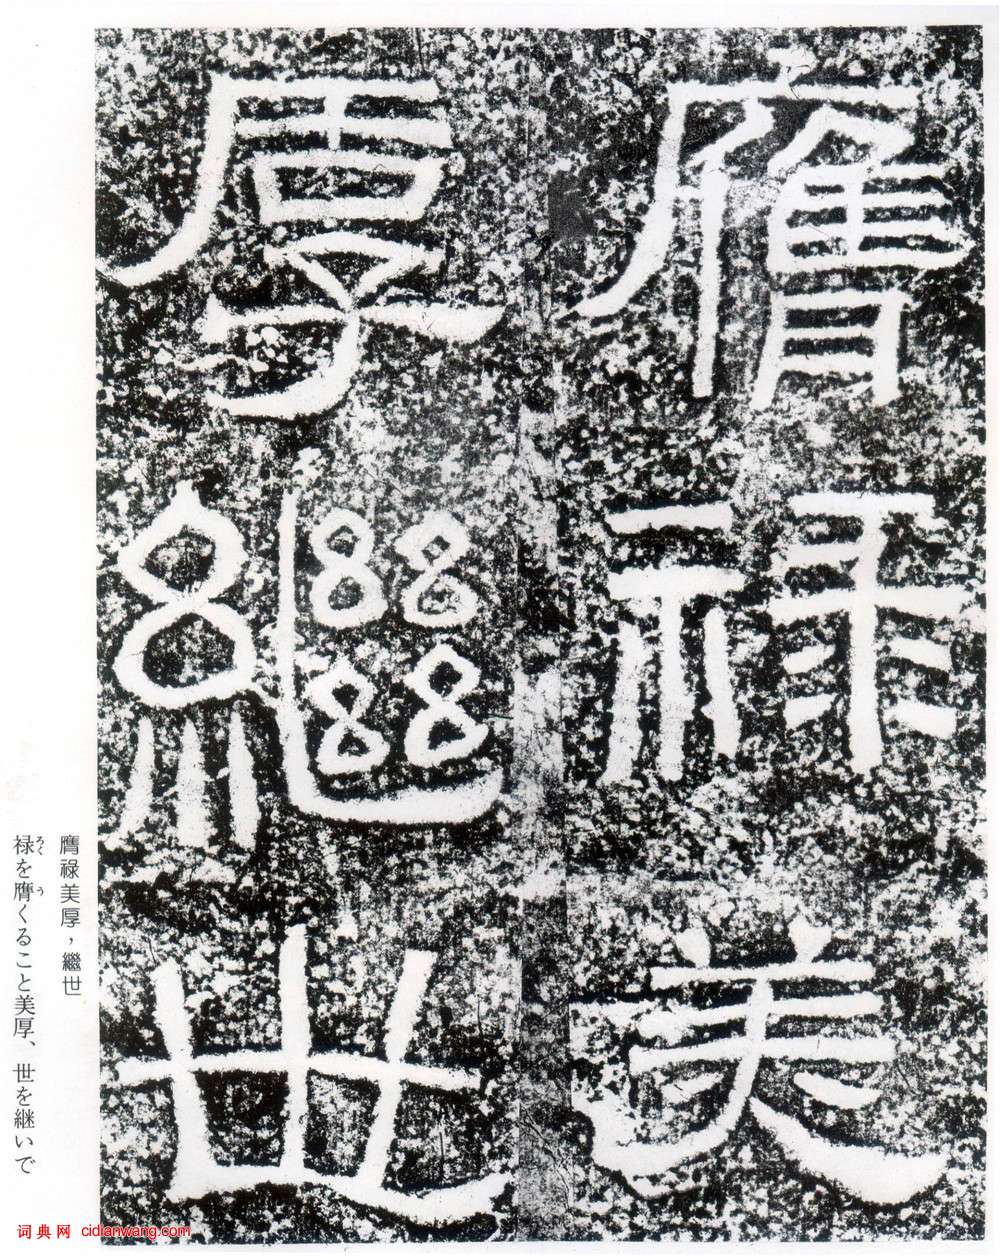 膺祿美
厚繼世
膺祿美厚，繼世
禄を膺くること美厚、世を継いで
ろく
う
词典网 cidianwang.com